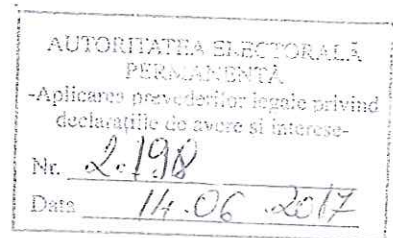 AUTORITATEA ELECTORALĂ
PERMANENTĂ
-Aplicarea prevederilor legale privind
declarațiile de avere si interese-
Nr. 2.198
Data 14.06.2017